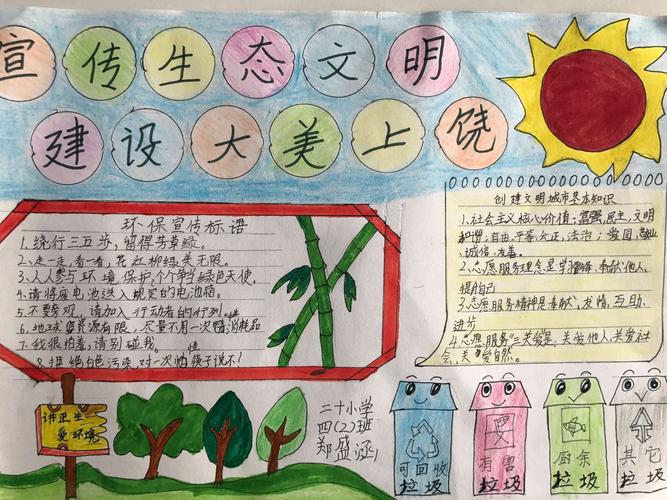 宣传生态文明
建设大美上饶
环保宣传标语
1.绕行三五步,留得芳草绿。
2.走一走,看一看,花红柳绿美无限。
3.人人参与环境保护,个个争当绿色天使。
4.请将废电池送入规定的电池箱。
5.不要旁观,请加入行动者的行列。
6.地球资源有限,尽量不用一次性消耗品
7.我很怕羞,请别碰我。
8.拒绝白色污染,对一次性筷子说不!
创建文明城市基本知识
1.社会主义核心价值:富强,民主,文明
和谐;自由,平等,公正,法治;爱国,敬业
诚信,友善。
2.志愿服务理念是学雷锋,奉献他人,
提升自己
3.志愿服务精神是奉献,友情,互助,
进步
4.志愿服务"三关爱是:关爱他人,关爱社
会,关爱自然。
讲卫生
爱环境
二十小学
四(2)班
郑盛涵
可回收
垃圾
有害
垃圾
厨余
垃圾
其它
垃圾